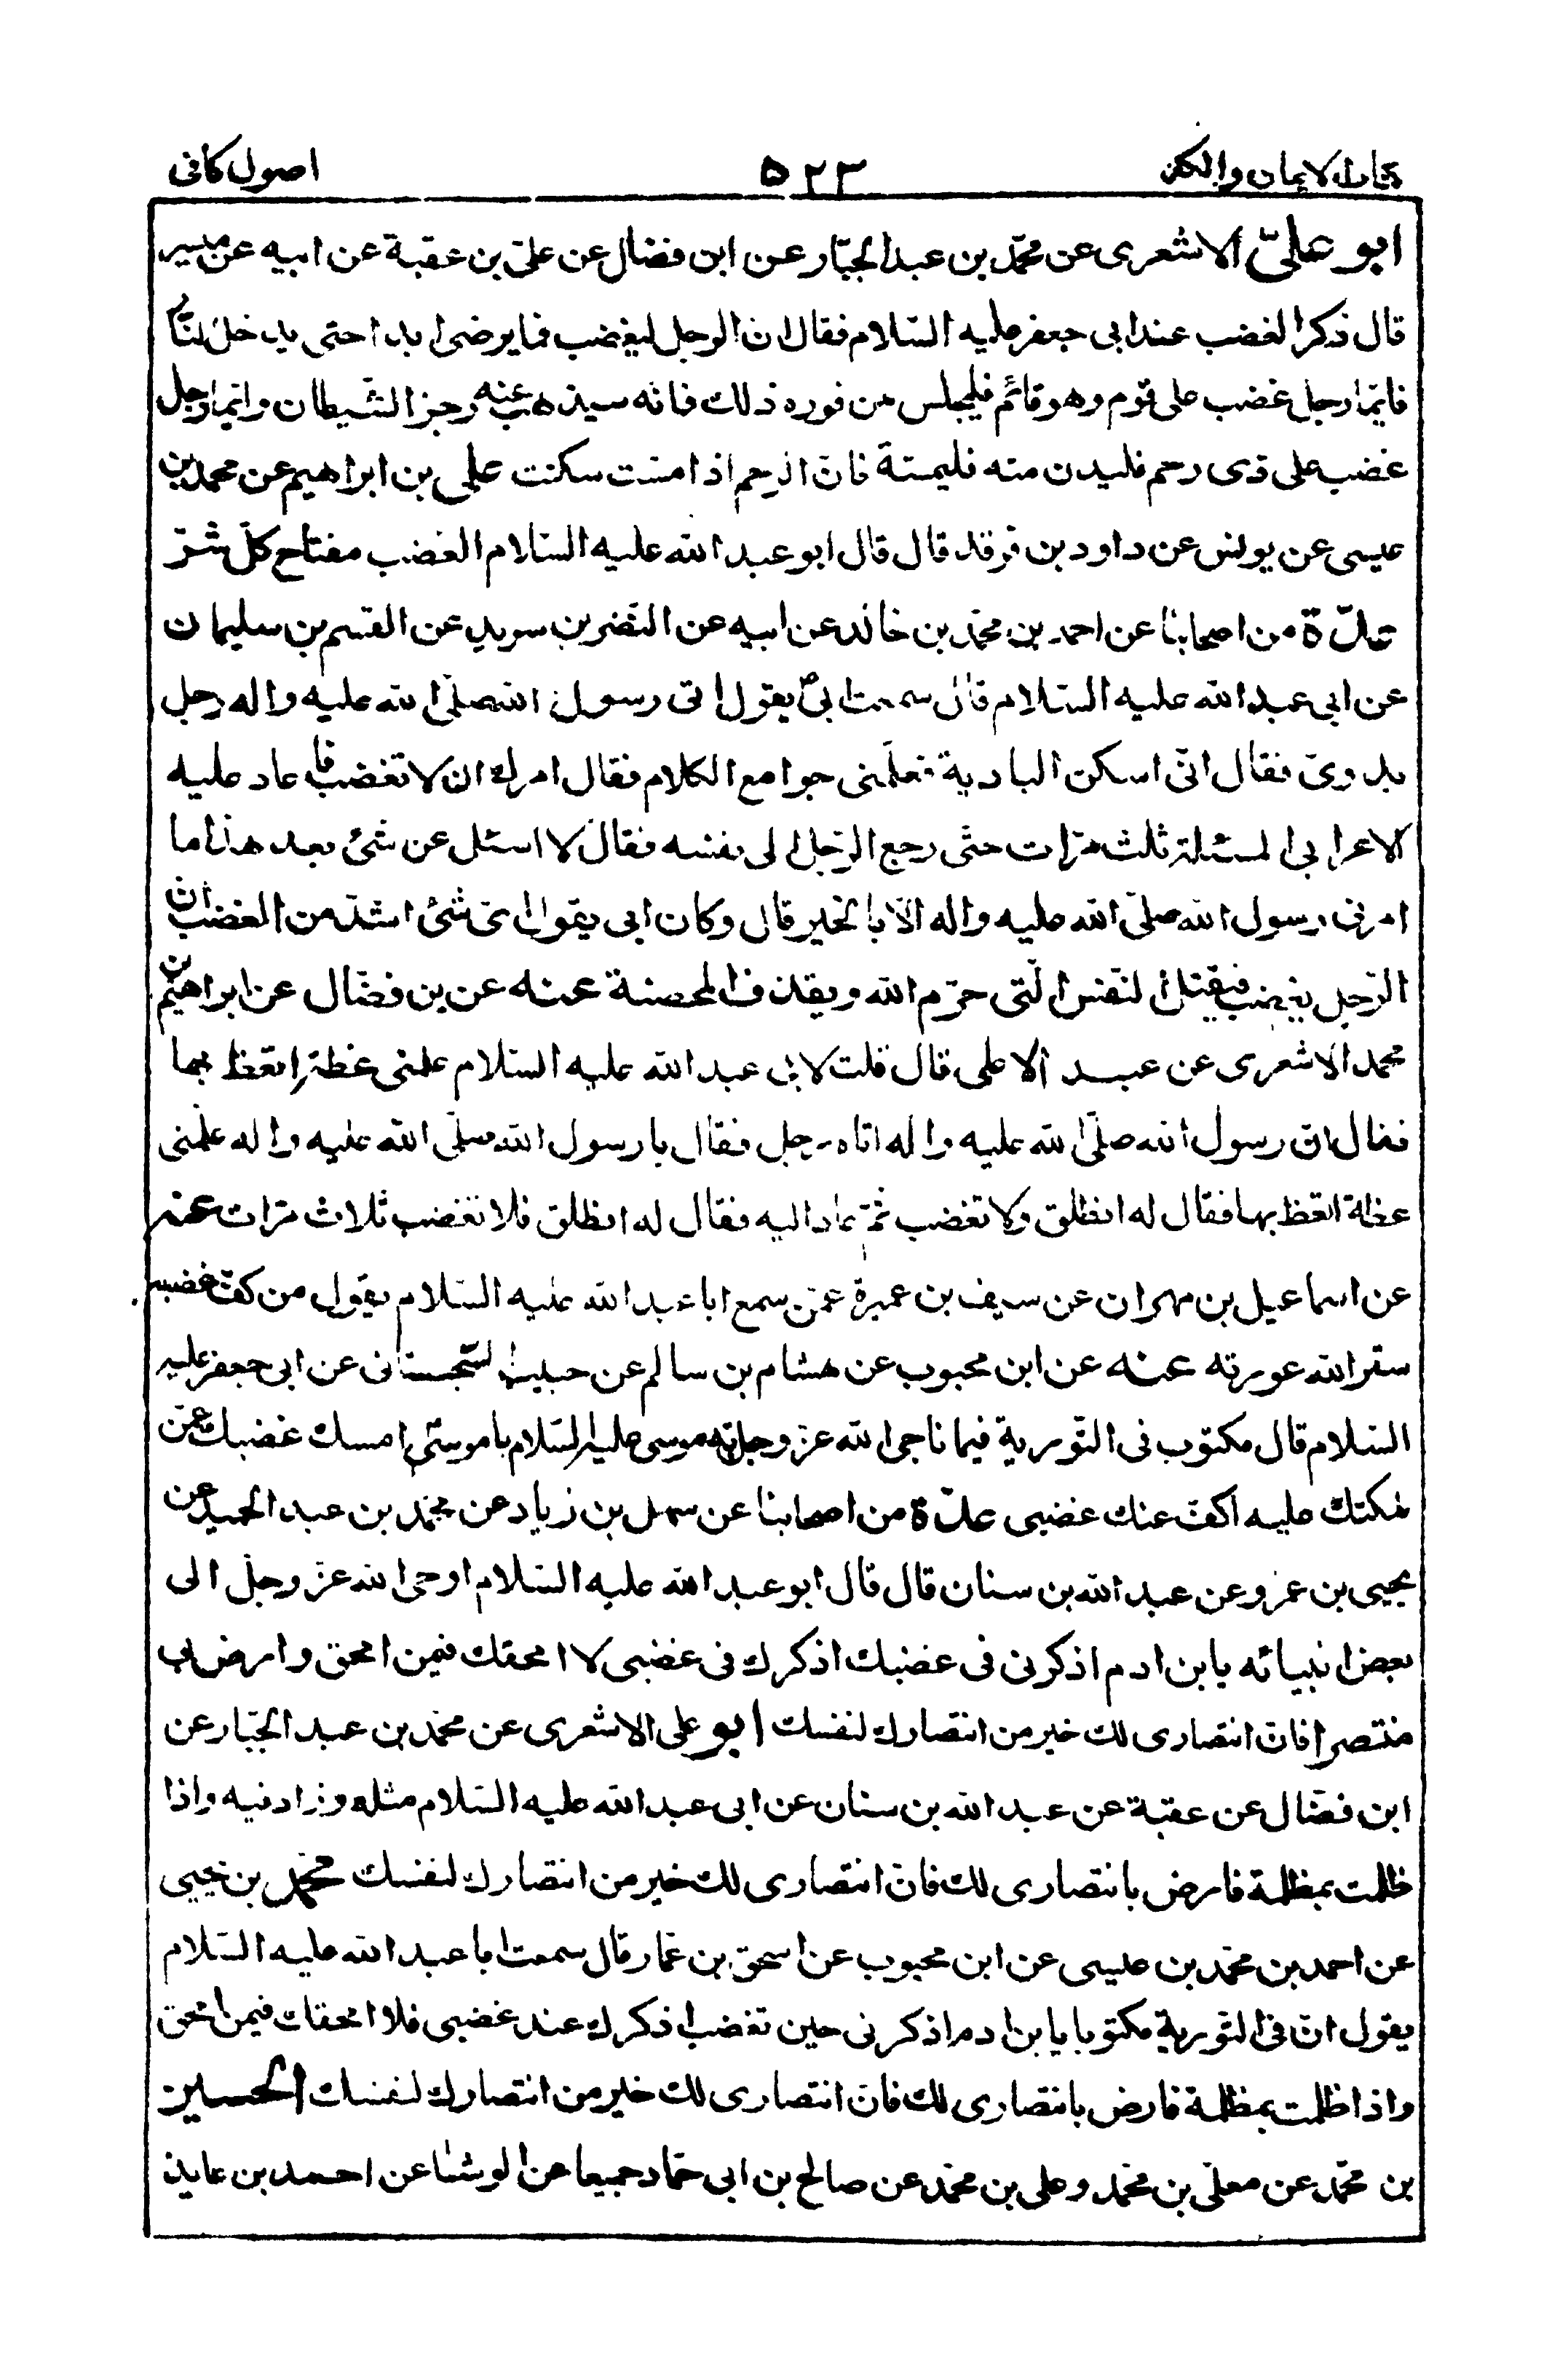 كتاب الايمان والكفر ٥٢٣ اصول كافى
ابو علىّ الاشعرى عن محمّد بن عبد الجبّار عن ابن فضال عن علىّ بن عقبة عن ابيه عن ميسر
قال ذكر الغضب عند ابى جعفر عليه السّلام فقال ان الرجل ليغضب فما يرضى ابدا حتى يدخل النّار
فايّما رجل غضب على قوم وهو قائم فليجلس من فوره ذلك فانه سيذهب عنه رجز الشّيطان وايّما رجل
غضب على ذى رحم فليدن منه فليمسّه فانّ الرحم اذا مسّت سكنت على بن ابراهيم عن محمد بن
عيسى عن يونس عن داود بن فرقد قال قال ابو عبد الله عليه السّلام الغضب مفتاح كلّ شرّ
عدّة من اصحابنا عن احمد بن محمّد بن خالد عن ابيه عن النّضر بن سويد عن القسم بن سليمان
عن ابى عبد الله عليه السّلام قال سمعت ابى يقول اتى رسول الله صلّى الله عليه واله رجل
بدوىّ فقال انّى اسكن البادية فعلّمنى جوامع الكلام فقال امرك ان لا تغضب فاعاد عليه
الاعرابى المسئلة ثلث مرّات حتّى رجع الرّجل الى نفسه فقال لا اسئل عن شئ بعد هذا ما
امرنى رسول الله صلّى الله عليه واله الّا بالخير قال وكان ابى يقول اىّ شئ اشدّ من الغضب ان
الرّجل يغضب فيقتل النّفس الّتى حرّم الله ويقذف المحصنة عنه عن بن فضّال عن ابراهيم بن
محمد الاشعرى عن عبد الاعلى قال قلت لابى عبد الله عليه السّلام علمنى عظة اتعظ بها
فقال انّ رسول الله صلّى الله عليه واله اتاه رجل فقال يا رسول الله صلّى الله عليه واله علّمنى
عظة اتعظ بها فقال له انطلق ولا تغضب ثمّ عاد اليه فقال له انطلق فلا تغضب ثلاث مرّات عنه
عن اسماعيل بن مهران عن سيف بن عميرة عمّن سمع ابا عبد الله عليه السّلام يقول من كفّ غضبه
ستر الله عورته عنه عن ابن محبوب عن هشام بن سالم عن حبيب السّجستانى عن ابى جعفر عليه
السّلام قال مكتوب فى التّورية فيما ناجى الله عزّ وجلّ به موسى عليه السّلام يا موسى امسك غضبك عمّن
ملكتك عليه اكفّ عنك غضبى عدّة من اصحابنا عن سهل بن زياد عن محمّد بن عبد الحميد عن
يحيى بن عمرو عن عبد الله بن سنان قال قال ابو عبد الله عليه السّلام اوحى الله عزّ وجلّ الى
بعض انبيائه يا بن ادم اذكرنى فى غضبك اذكرك فى غضبى لا امحقك فيمن امحق وارض بى
منتصرا فانّ انتصارى لك خير من انتصارك لنفسك ابو على الاشعرى عن محمّد بن عبد الجبّار عن
ابن فضّال عن عقبة عن عبد الله بن سنان عن ابى عبد الله عليه السّلام مثله وزاد فيه واذا
ظلمت بمظلمة فارض بانتصارى لك فانّ انتصارى لك خير من انتصارك لنفسك محمّد بن يحيى
عن احمد بن محمّد بن عيسى عن ابن محبوب عن اسحق بن عمّار قال سمعت ابا عبد الله عليه السّلام
يقول انّ فى التّورية مكتوبا يا بن ادم اذكرنى حين تغضب اذكرك عند غضبى فلا امحقك فيمن امحق
واذا ظلمت بمظلمة فارض بانتصارى لك فانّ انتصارى لك خير من انتصارك لنفسك الحسين
بن محمّد عن معلّى بن محمّد وعلى بن محمّد عن صالح بن ابى حمّاد جميعا عن الوشّا عن احمد بن عايذ